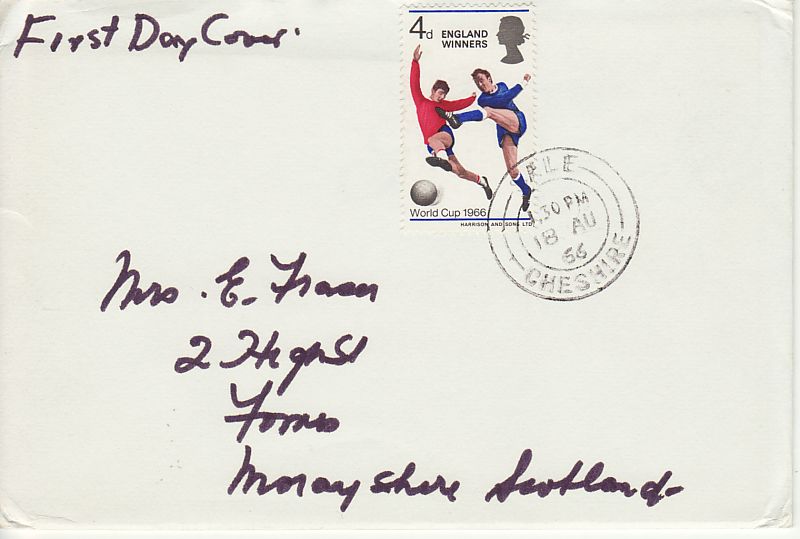 First Day Cover.
4d ENGLAND
WINNERS
World Cup 1966
HARRISON AND SONS LTD
ALE
1.30 PM
18 AU
66
CHESHIRE
Mrs. E. Fraser
2 High St
Forres
Morayshire Scotland